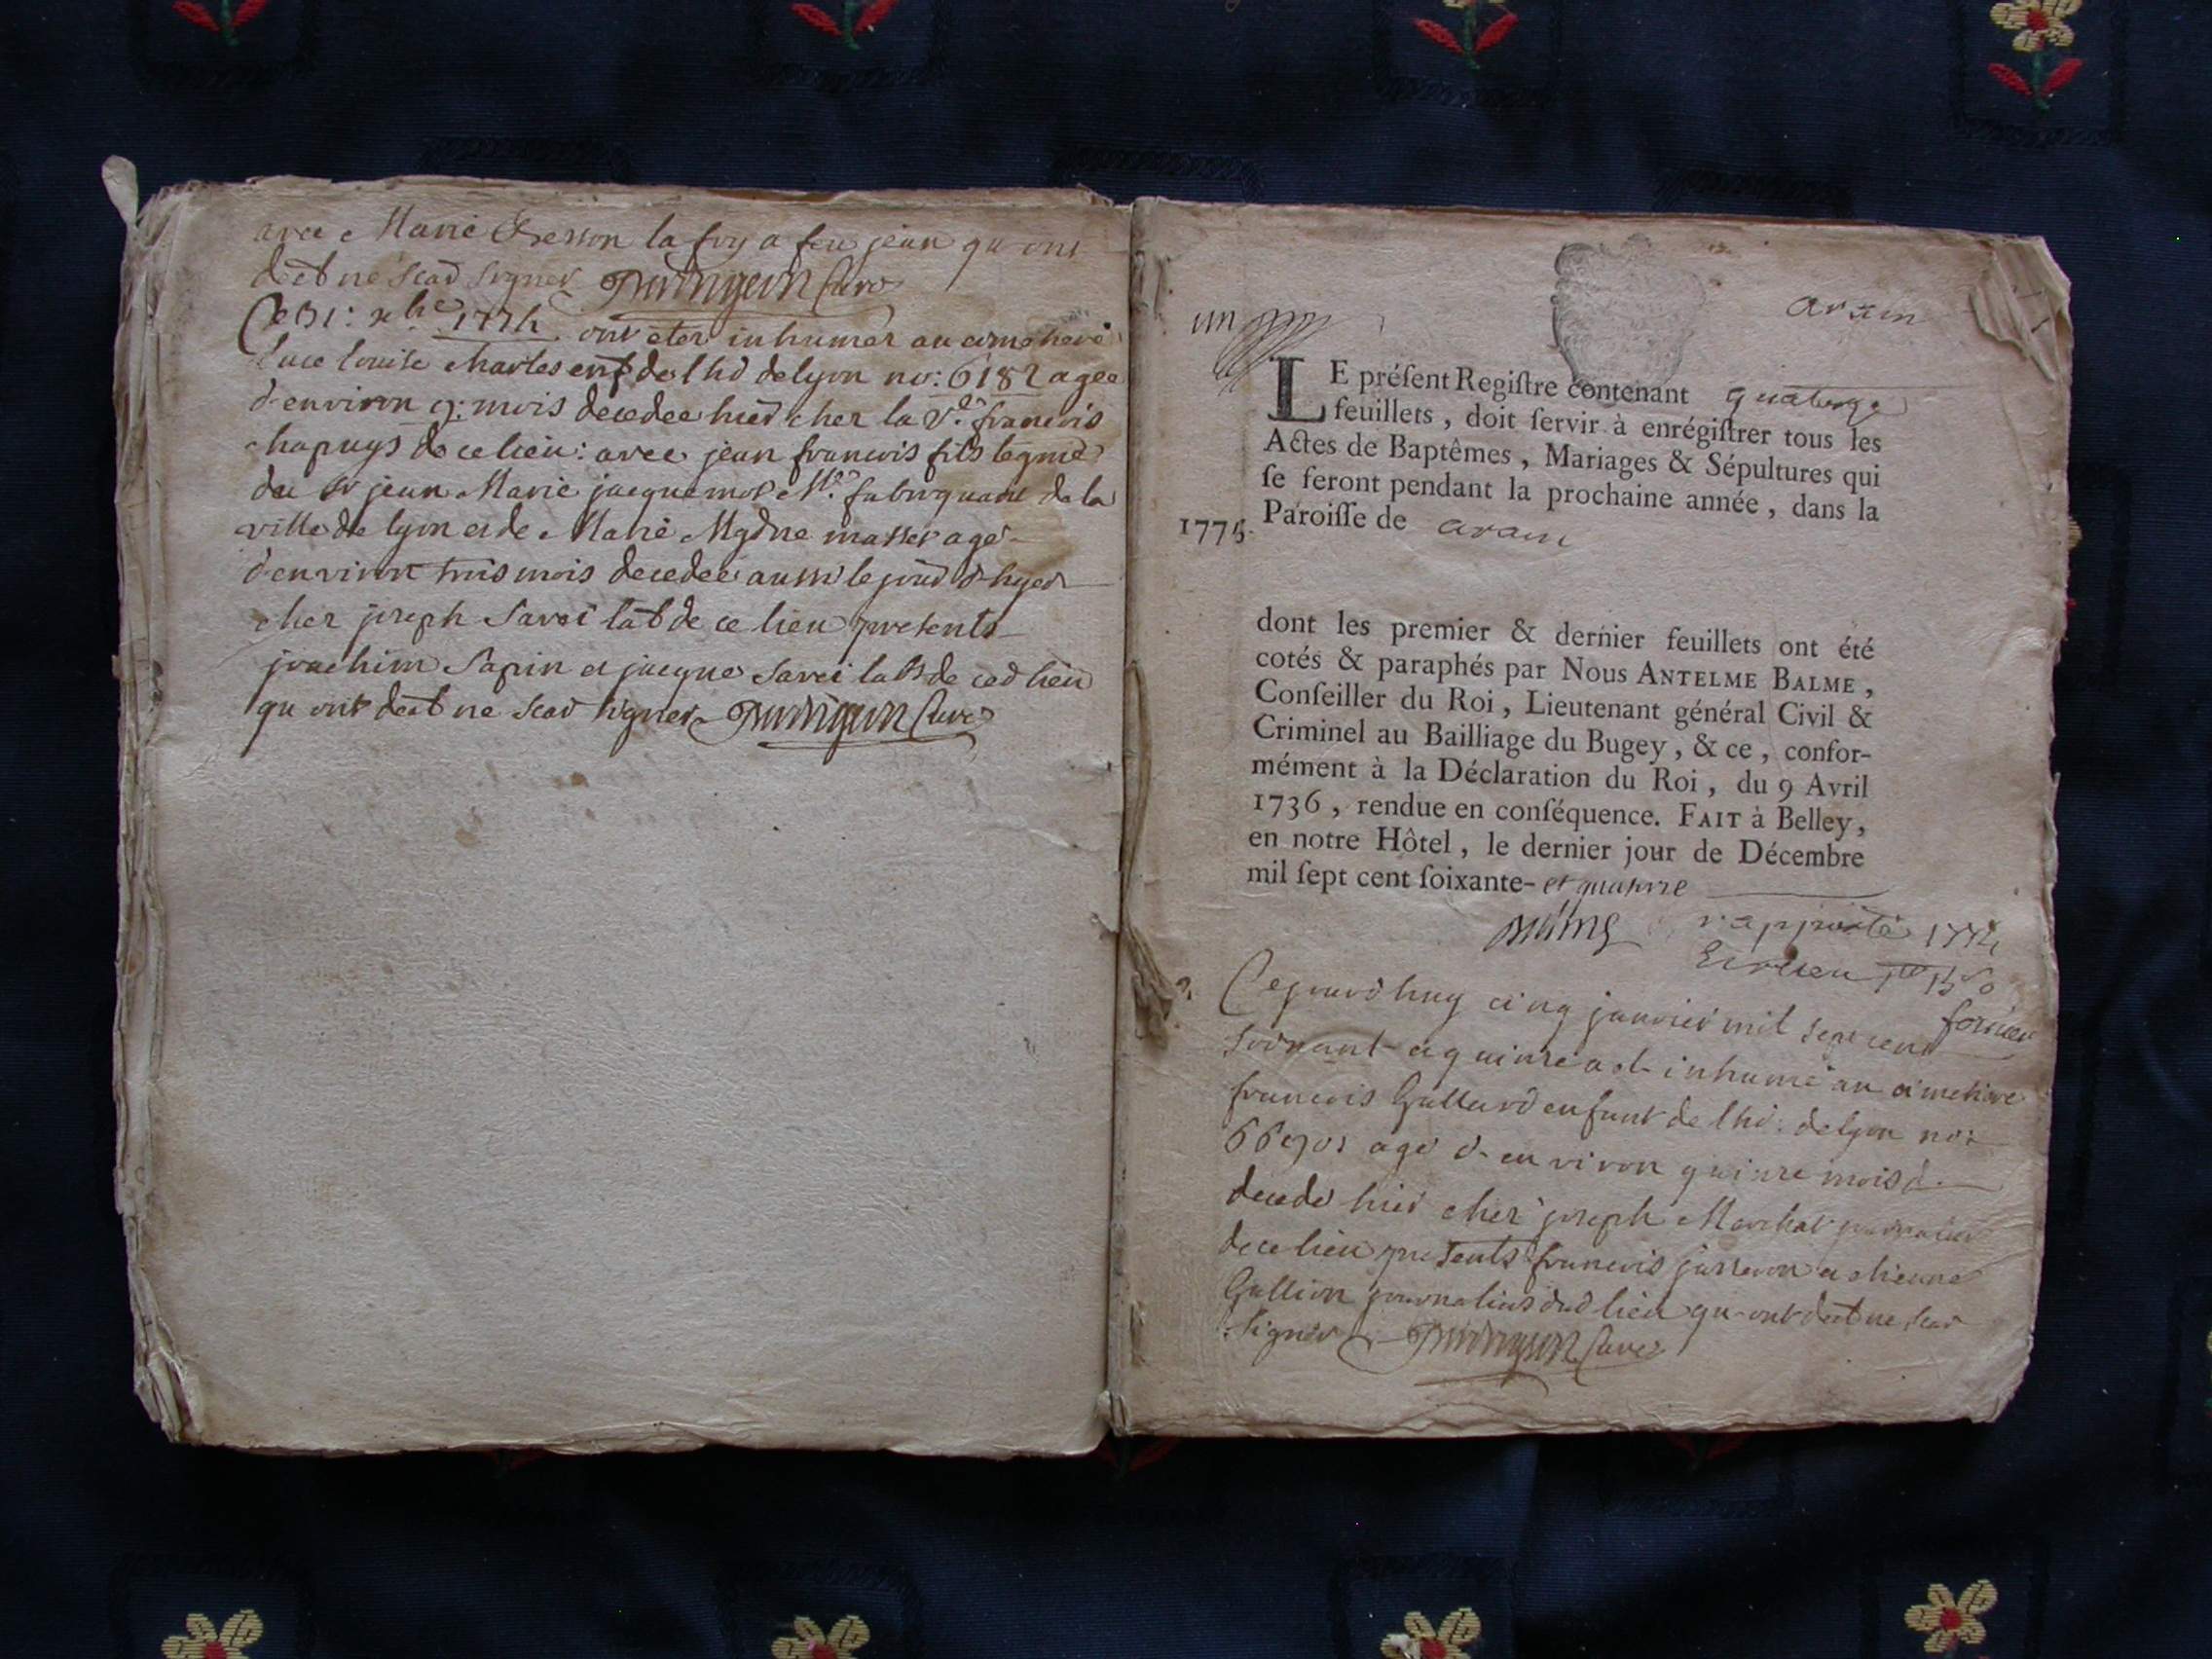 avec Marie Besson la foy a feu jean qu ont
declt ne scad signer curé
Ce 31: xbre 1774 ont eter inhumer au cimetiere
luce louise charles enft de lhd de lyon no: 6182 agee
d-environ 9: mois decedee hier cher la Ve francois
chapuys de ce lieu: avec jean francois fils legme
du sr jean Marie jacquemot Md fabriquant de la
ville de lyon et de Marie Mgdne masser agé
d-environ trois mois decedee aussi le jour d-hyer
cher joseph Savei labt de ce lieu presents
joachim Sapin et jacque Savei labt de ced lieu
qu ont declt ne scad signer curé
un
arain
LE préſent Regiſtre contenant quatorze
feuillets, doit ſervir à enrégiſtrer tous les
Actes de Baptêmes, Mariages & Sépultures qui
ſe feront pendant la prochaine année, dans la
1775. Paroiſſe de arain
dont les premier & dernier feuillets ont été
cotés & paraphés par Nous ANTELME BALME,
Conſeiller du Roi, Lieutenant général Civil &
Criminel au Bailliage du Bugey, & ce, confor-
mément à la Déclaration du Roi, du 9 Avril
1736, rendue en conſéquence. FAIT à Belley,
en notre Hôtel, le dernier jour de Décembre
mil ſept cent ſoixante- et quatorze
Balme rapporté 1774
Cejourd huy cinq janvier mil sept cent
soixant et quinze a et inhumé au cimetiere
francois Gallard enfant de lhd: de lyon no:
agé d-environ quinze mois
decede hier cher joseph Marchat journalier
de ce lieu presents francois jasseron et etienne
Gallion journaliers dud lieu qu-ont declt ne scad
signer curé